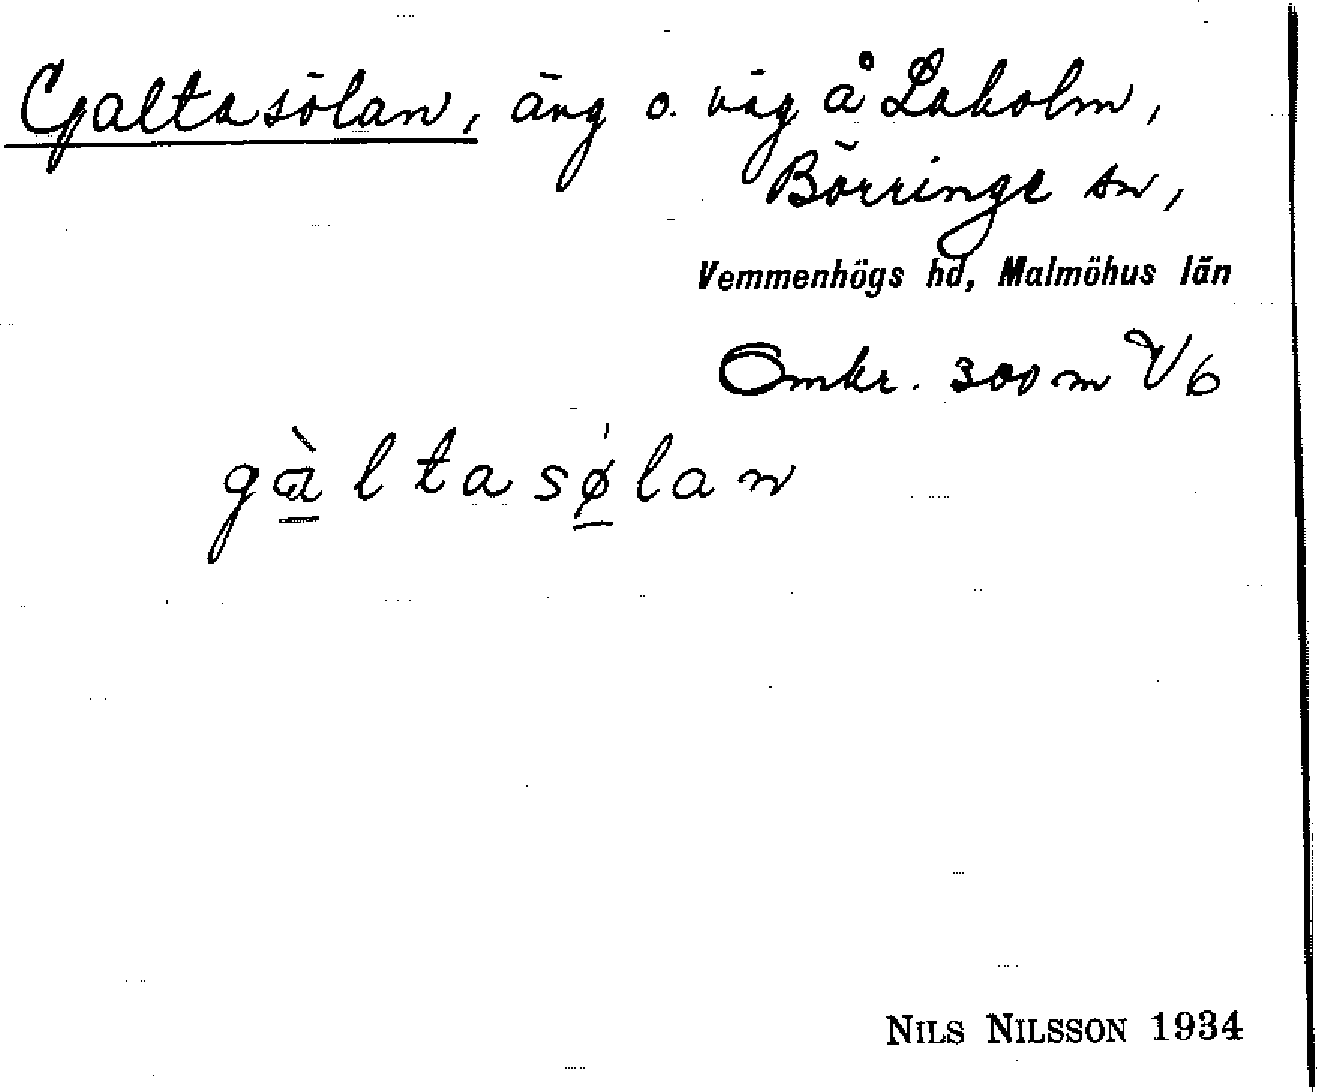 Galtasölan, äng o. väg å Laholm,
Börringe sn,
Vemmenhögs hd, Malmöhus län
Omkr. 300 m V/6
gàltasølan
NILS NILSSON 1934